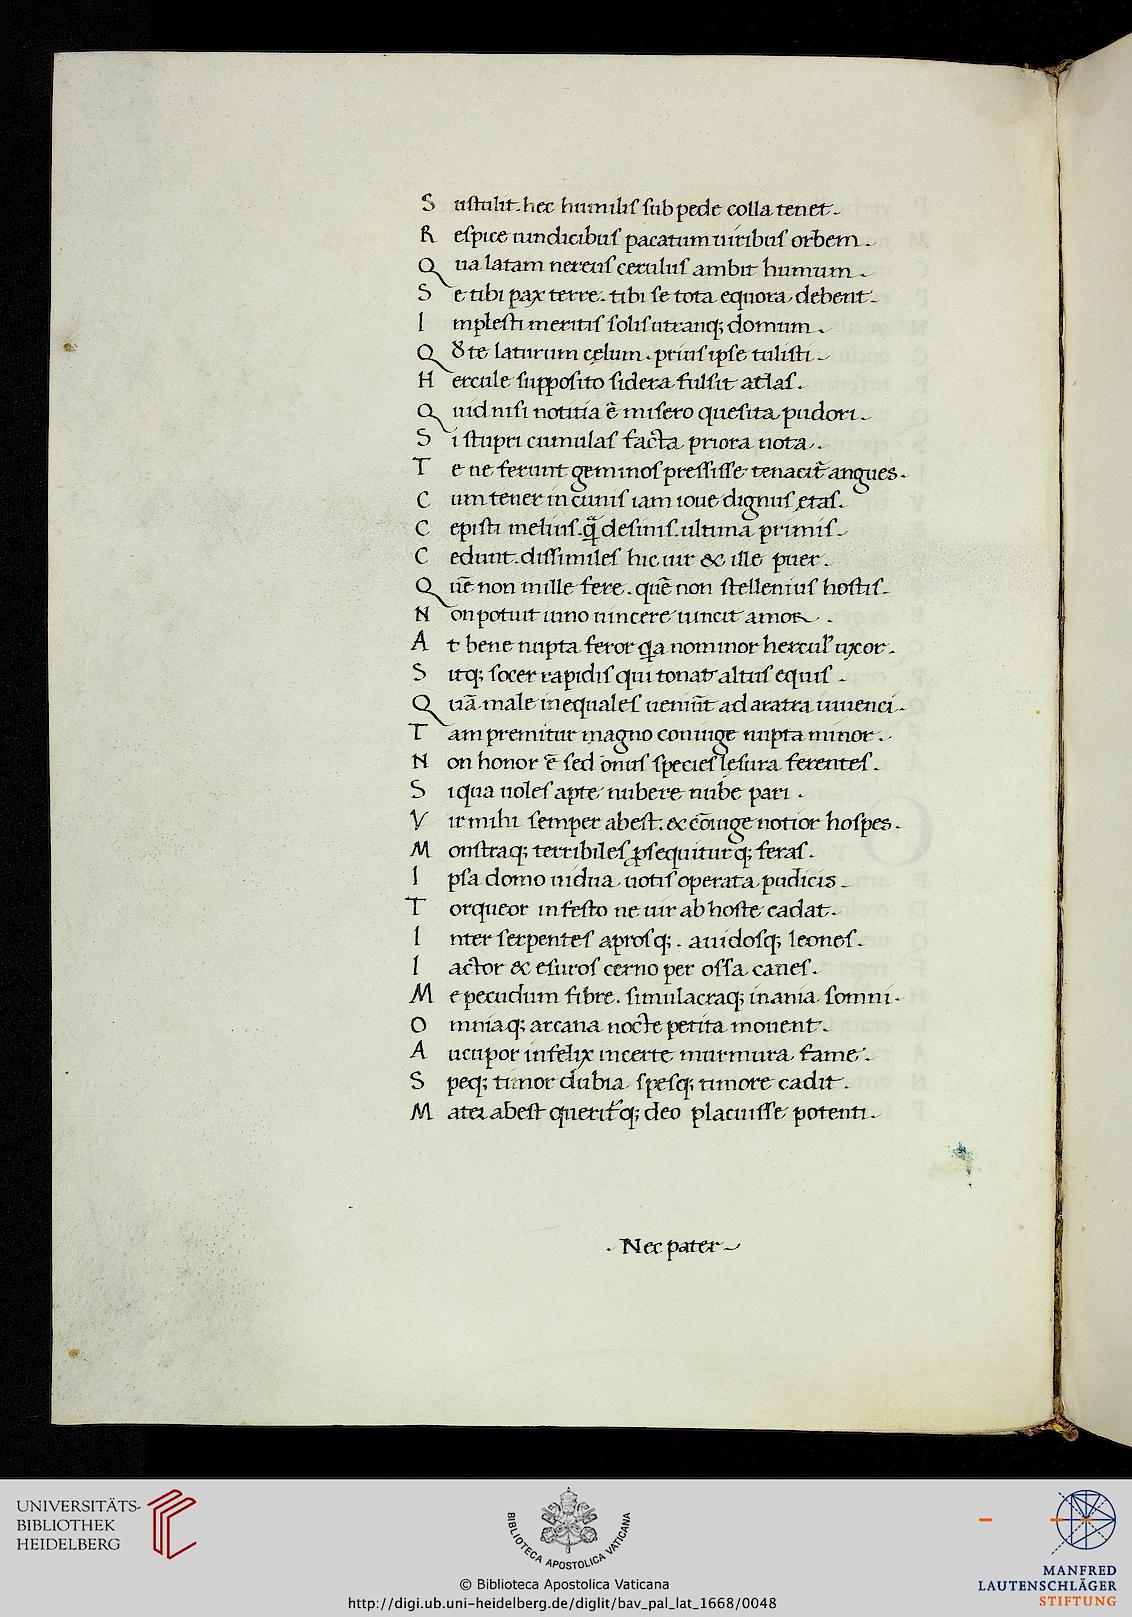 S ustulit. hec humilis sub pede colla tenet.
R espice uindicibus pacatum uiribus orbem.
Q ua latam nereus cerulus ambit humum.
S e tibi pax terre. tibi se tota equora debent.
I mplesti meritis solis utranq; domum.
Q ꝺ te laturum cęlum. prius ipse tulisti.
H ercule supposito sidera fulsit atlas.
Q uid nisi notitia ē misero quesita pudori.
S i stupri cumulas facta priora nota.
T e ne ferunt geminos pressisse tenacit̄ angues.
C um tener in cunis iam ioue dignus etas.
C episti melius. q̄ desinis. ultima primis.
C edunt. dissimiles hic uir & ille puer.
Q uē non mille fere. quē non stellenius hostis.
N on potuit iuno uincere uincit amor.
A t bene nupta feror qa nominor hercul' uxor.
S itq; socer rapidis qui tonat altus equis.
Q uā male inequales ueniūt ad aratra iuuenci.
T am premitur magno coniuge nupta minor.
N on honor ē sed onus species lesura ferentes.
S iqua uoles apte nubere nube pari.
V ir mihi semper abest. & cōiuge notior hospes.
M onstraq; terribiles ꝓsequiturq; feras.
I psa domo uidua uotis operata pudicis.
T orqueor infesto ne uir ab hoste cadat.
I nter serpentes aprosq;. auidosq; leones.
I actor & esuros cerno per ossa canes.
M e pecudum fibre. simulacraq; inania somni.
O mniaq; arcana nocte petita mouent.
A ucupor infelix incerte murmura fame.
S peq; timor dubia spesq; timore cadit.
M ater abest querit̄q; deo placuisse potenti.
. Nec pater.
UNIVERSITÄTS-
BIBLIOTHEK
HEIDELBERG
BIBLIOTECA APOSTOLICA VATICANA
MANFRED
LAUTENSCHLÄGER
STIFTUNG
© Biblioteca Apostolica Vaticana
http://digi.ub.uni-heidelberg.de/diglit/bav_pal_lat_1668/0048